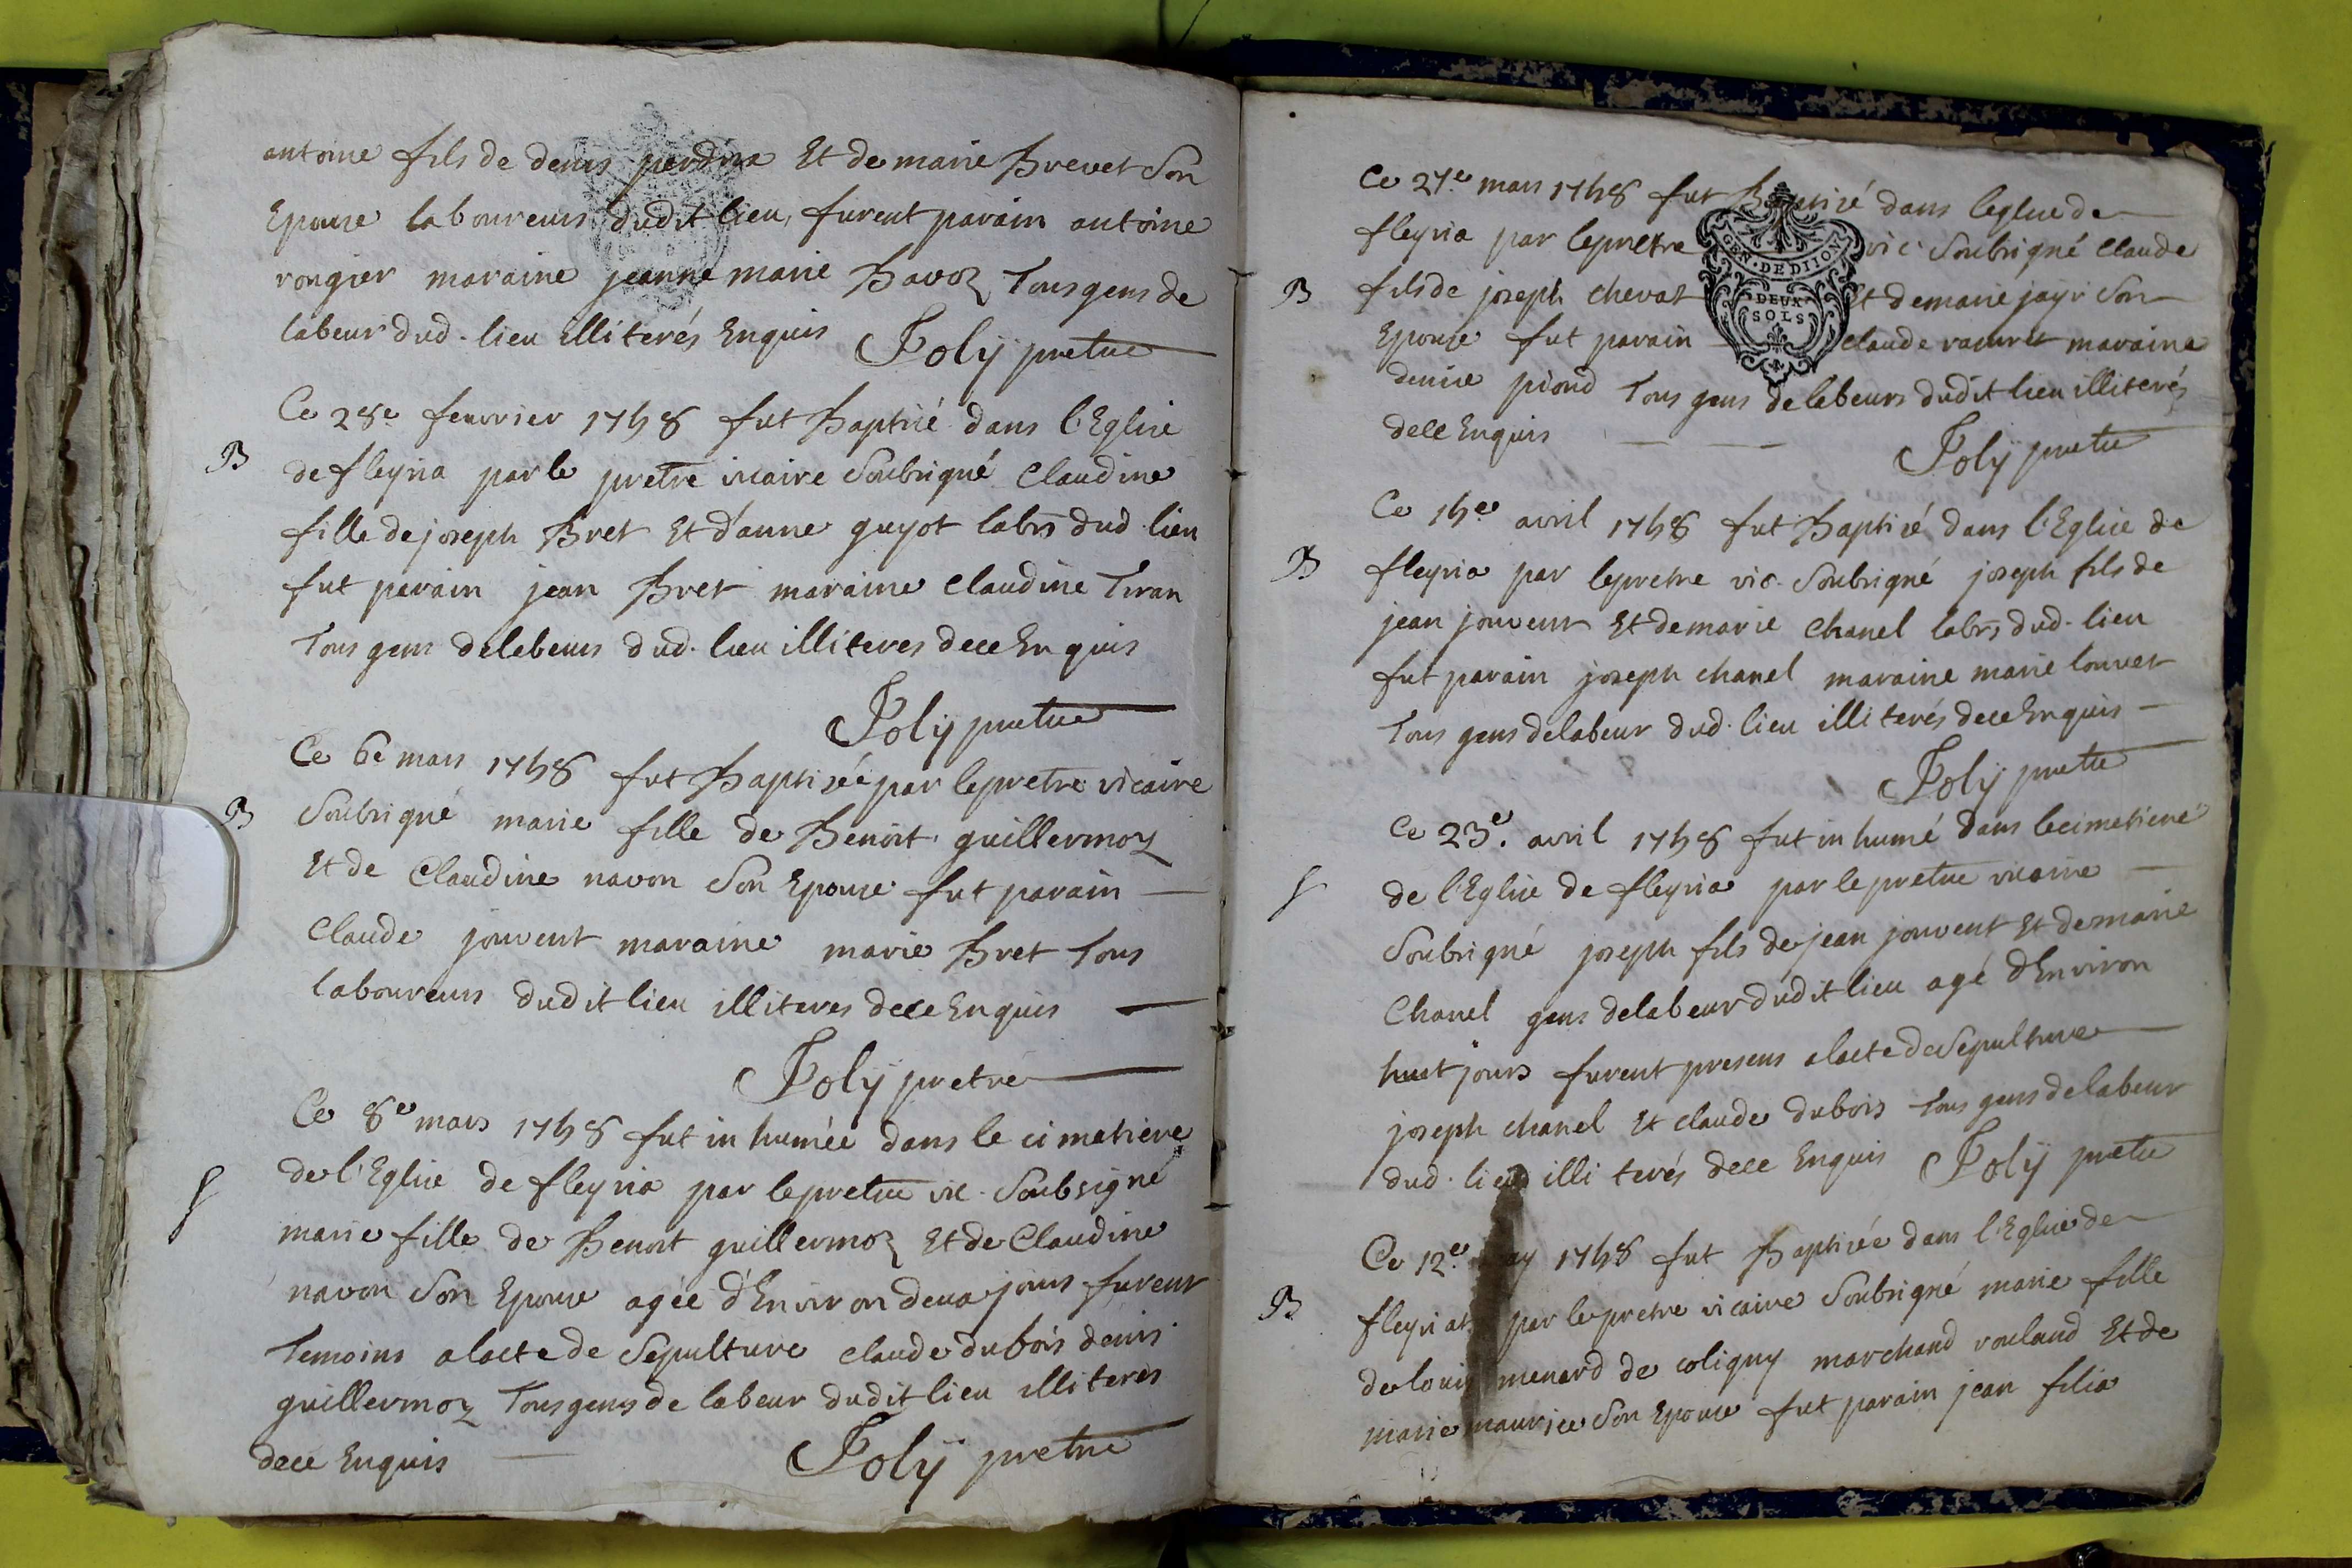 antoine fils de denis perdrix Et de marie Brevet Son
Epouse laboureurs dudit lieu, furent parain antoine
rongier maraine jeanne marie Bavoz Tous gens de
labeur dud. lieu illiterés Enquis Joly pretre
Ce 28e feuvrier 1758 fut Baptisé dans l'Eglise
B
de fleyria par le pretre vicaire Soubsigné Claudine
fille de joseph Bret Et d'anne guyot labrs dud. lieu
fut parain jean Bret maraine Claudine Tiran
Tous gens de labeurs dud. lieu illiteres de ce Enquis
Joly pretre
Ce 6e mars 1758 fut Baptisée par le pretre vicaire
B
Soubsigné marie fille de Benoit guillermoz
Et de Claudine navon Son Epouse fut parain
Claude jouvent maraine marie Bret Tous
laboureurs dudit lieu illiteres de ce Enquis
Joly pretre
Ce 8e mars 1758 fut inhumée dans le cimetiere
S
de l'Eglise de fleyria par le pretre vic. Soubsigné
marie fille de Benoit guillermoz Et de Claudine
navon Son Epouse agée d'Environ deux jours furent
Temoins a lacte de Sepulture claude dubois denis
guillermoz Tous gens de labeur dudit lieu illiteres
de ce Enquis Joly pretre
Ce 27e mars 1758 fut Baptisé dans leglise de
fleyria par le pretre vic. Soubsigné Claude
B
fils de joseph chevat Et de marie jayr Son
GEN. DE DIJON
DEUX SOLS
Epouse fut parain claude ramret maraine
denise piond Tous gens de labeurs dudit lieu illiterés
de ce Enquis Joly pretre
Ce 15e avril 1758 fut Baptisé dans l'Eglise de
B
fleyria par le pretre vic. Soubsigné joseph fils de
jean jouvent Et de marie Chanel labrs dud. lieu
fut parain joseph chanel maraine marie louvet
Tous gens de labeur dud. lieu illiterés de ce Enquis
Joly pretre
Ce 23e. avril 1758 fut inhumé dans le cimetiere
S
de l'Eglise de fleyria par le pretre vicaire
Soubsigné joseph fils de jean jouvent Et de marie
Chanel gens de labeur dudit lieu agé d'Environ
huit jours furent presens a lacte de Sepulture
joseph chanel Et claude dubois Tous gens de labeur
dud. lieu illiterés de ce Enquis Joly pretre
Ce 12e may 1758 fut Baptisée dans l'Eglise de
B
fleyriat par le pretre vicaire Soubsigné marie fille
de louis menard de coligny marchand rouland Et de
marie maurice Son Epouse fut parain jean filia